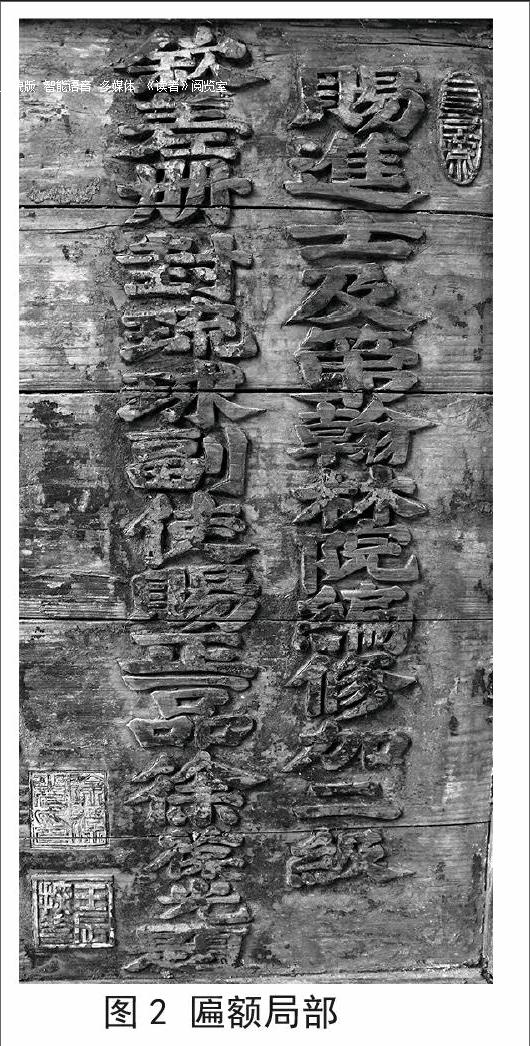 版 智能语音 多媒体 《读者》阅览室
賜進士及第翰林院編修加二級
欽差册封琉球副使賜正一品徐葆光題
图 2 匾额局部